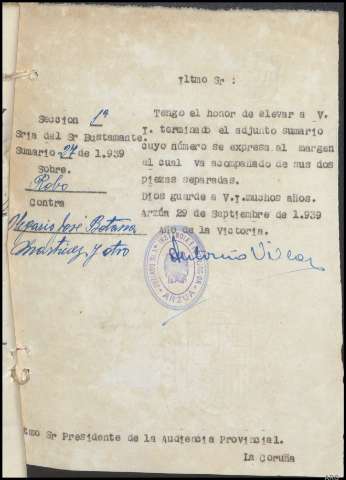 Iltmo Sr :
Seccion 1ª
Sria del Sr Bustamante.
Sumario 27 de 1.939
Sobre.
Robo
Contra
José
Martinez y otro
Tengo el honor de elevar a V.
I. terminado el adjunto sumario
cuyo número se expresa al margen
el cual va acompañado de sus dos
piezas separadas.
Dios guarde a V.I.muchos años.
Arzúa 29 de Septiembre de 1.939
Año de la Victoria.
Antonio Villar
ARZUA
tmo Sr Presidente de la Audiencia Provincial.
La Coruña